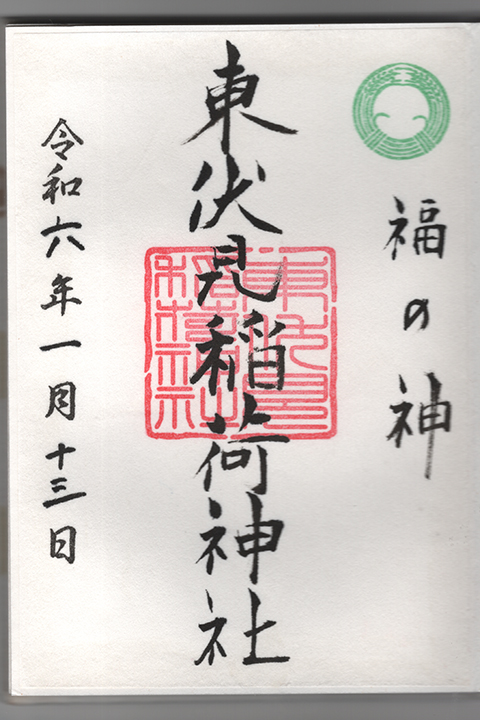 福の神
東伏見稲荷神社
令和六年一月十三日